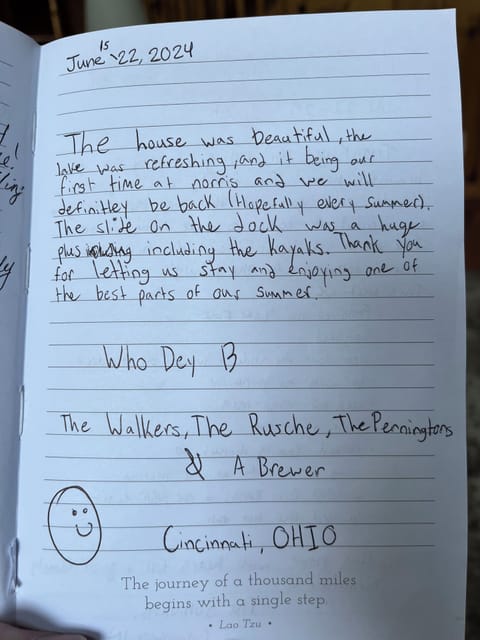 June 15-22, 2024
The house was beautiful, the
lake was refreshing, and it being our
first time at norris and we will
definitley be back (Hopefully every summer).
The slide on the dock was a huge
plus including the Kayaks. Thank you
for letting us stay and enjoying one of
the best parts of our summer.
Who Dey B
The Walkers, The Rusche, The Penningtons
& A Brewer
Cincinnati, OHIO
The journey of a thousand miles
begins with a single step.
• Lao Tzu •